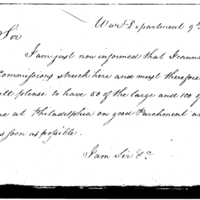 War Department 9th
Sir
I am just now informed that I cannot
Commissions struck here and must therefore
will please to have 50 of the large and 100 of
at Philadelphia on good Parchment
as soon as possible.
I am Sir &c